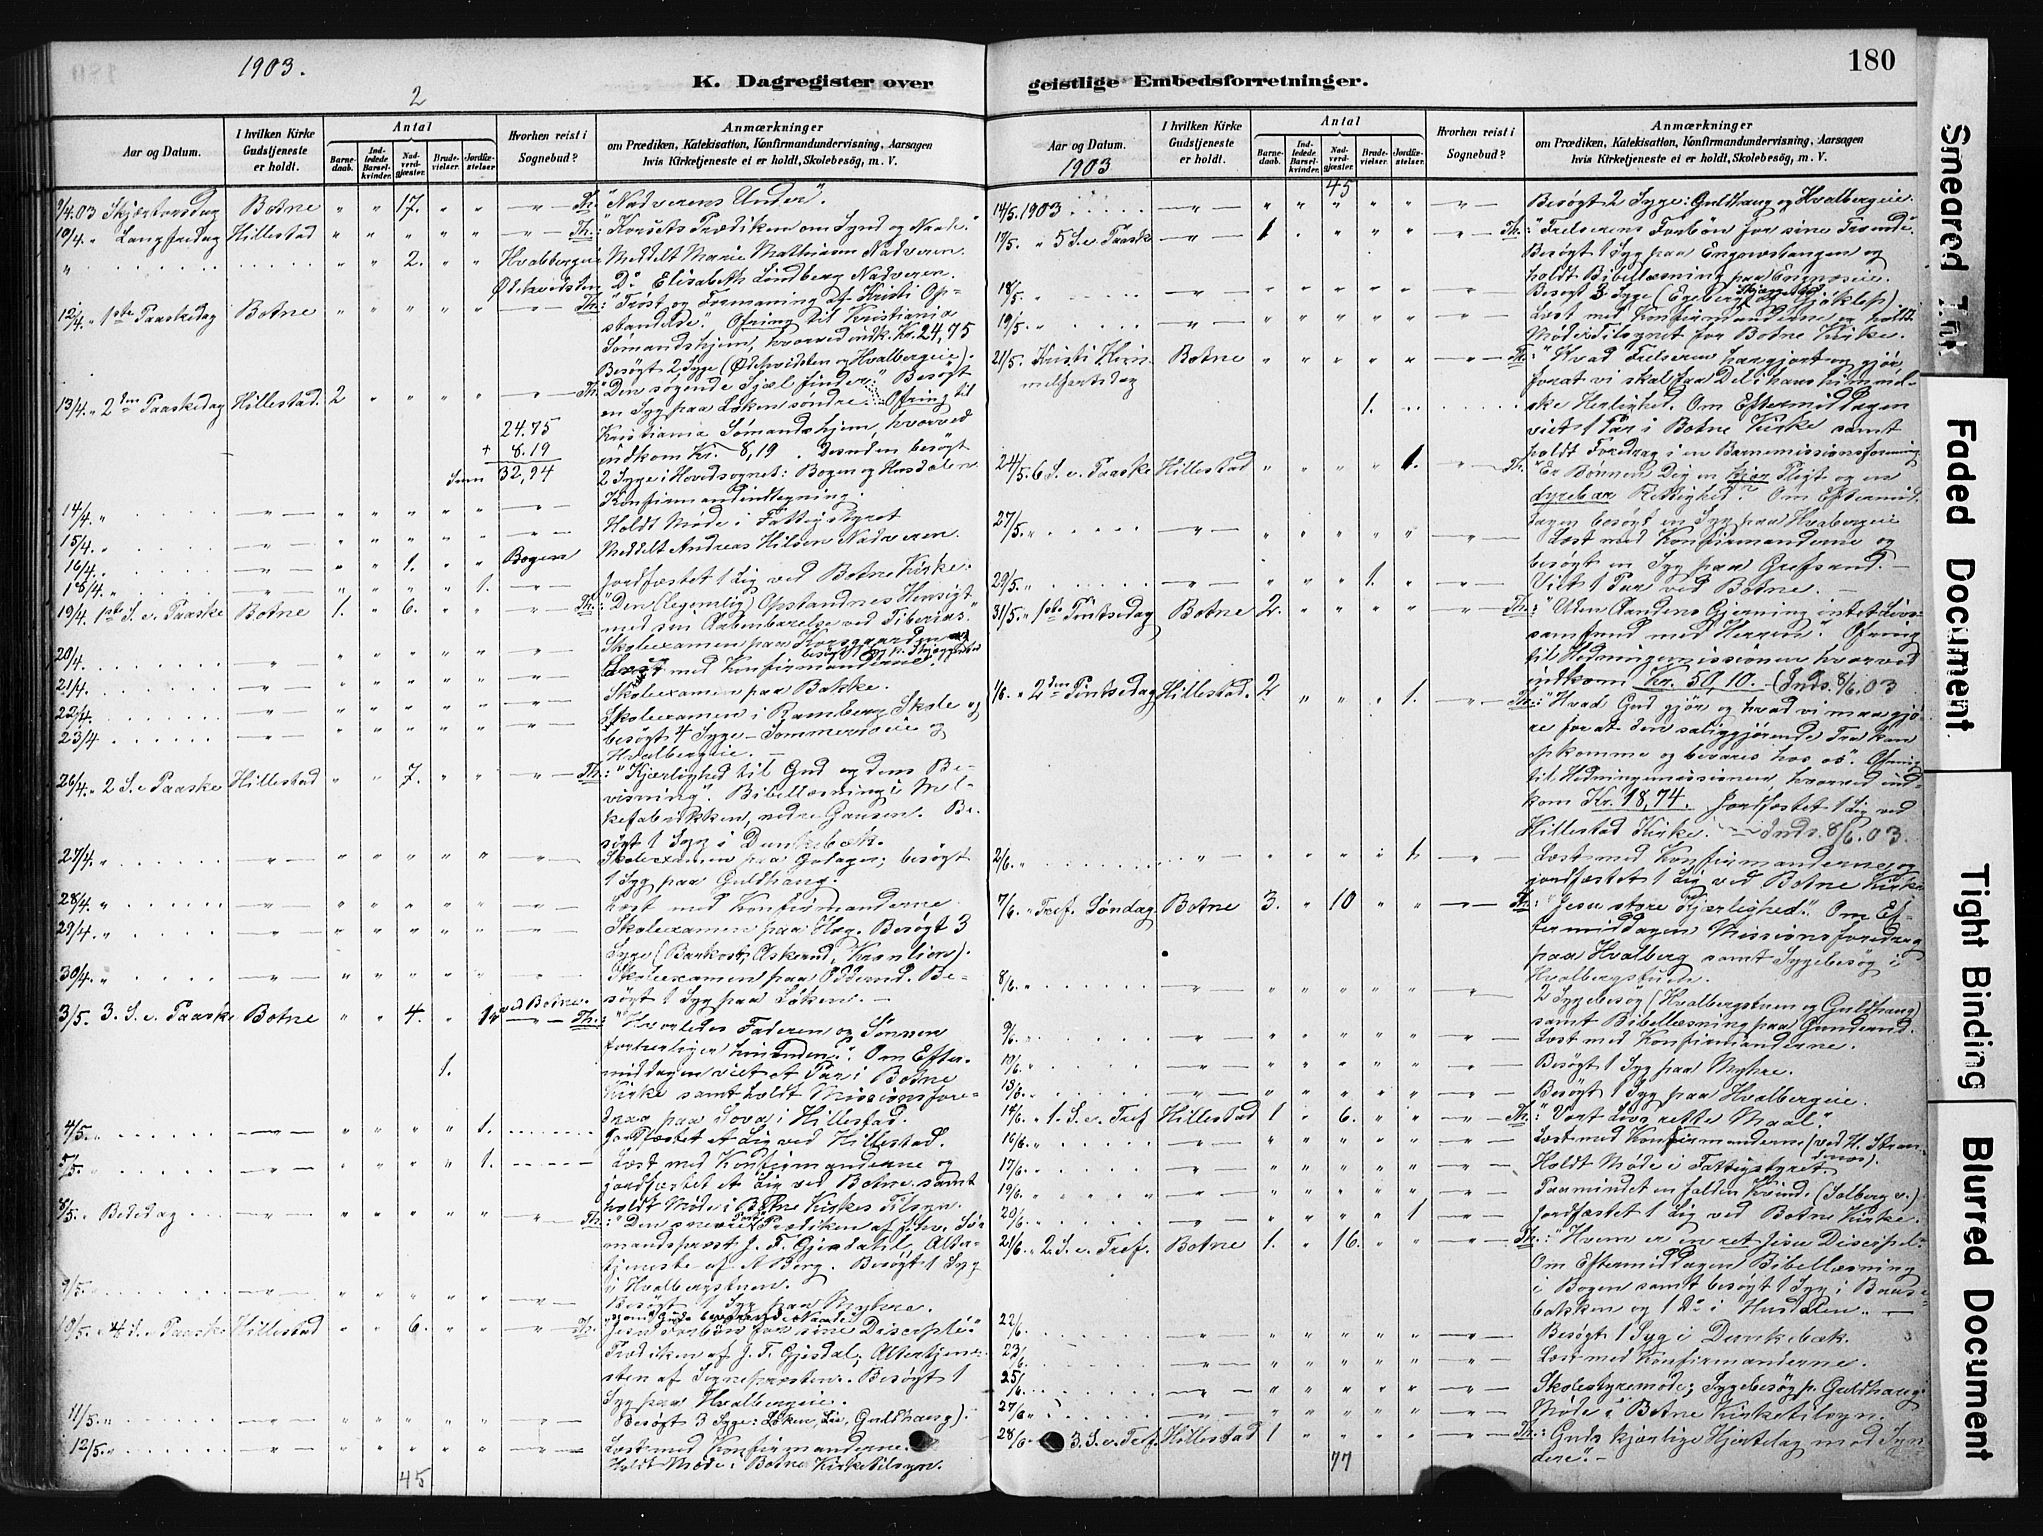 1903.
2
K. Dagregister over
Aar og Datum.
I hvilken Kirke Gudstjeneste er holdt.
Antal
Barnedaab.
Indledede Barselkvinder.
Nadverdgjæster.
Brudevielser.
Jordfæstelser
Hvorhen reist i Sognebud?
Anmærkninger
om Prædiken, Katekisation, Konfirmandundervisning, Aarsagen
hvis Kirketjeneste ei er holdt, Skolebesøg, m. V.
9/4.03 Skjærtorsdag Botne " " 17. " " Th: "Nadverens Under".
10/4. " Langfredag Hillestad " " " " " Th.: "Korsets Prædiken om Synd og Naade."
" " " 2. " " Hvalbergeie Meddelt Marie Mathiasen Nadveren.
Ødekvidsten Do Elisabeth Lindberg Nadveren.
12/4. " 1ste Paaskedag Botne " " " " " Th: "Trøst og Formaning af Kristi Op-
standelse". Ofring til Kristiania
Sømandshjem, hvorved indk. Kr. 24,75
Besøgt 2 Syge (Ødekvidsten og Hvalbergeie).
13/4. " 2den Paaskedag Hillestad. 2 " " " " Th: "Den søgende Sjæl finder." Besøgt
en Syg paa Løken søndre. Ofring til
24.75 Kristiania Sømandshjem, hvorved
+ 8.19 indkom Kr. 8,19. Desuden besøgt
Sum 32,94 2 Syge i Hovedsognet: Bogen og Husdalen
Konfirmandindtegning.
14/4. " Holdt Møde i Fattigstyret
15/4. " Meddelt Andreas Hilsen Nadveren.
16/4. " 1. Bogen
18/4. " 1. Jordfæstet 1 Lig ved Botne Kirke.
19/4. 1ste S. e. Paaske Botne 1. " 6. " " Th: "Den (legemlig) Opstandnes Hensigt
med sin Aabenbarelse ved Tiberias."
20/4. Skoleexamen paa Korsgaarden og
besøgt 1 Syg
21/4. Læst med Konfirmanderne.
22/4. Skoleexamen paa Bakke.
23/4 Skoleexamen i Ramberg Skole og
besøgt 4 Syge - Sommeroeie og
Hvalbergeie. —
26/4. " 2 S. e Paaske Hillestad " " 7. " " Th: "Kjærlighed til Gud og dens Be-
visning". Bibellæsning i Mel-
kefabrikken, nedre Gausen. Be-
søgt 1 Syg i Dunkebæk.
27/4. " Skoleexamen paa Golager; besøgt
1 Syg paa Guldhaug.
28/4. " Læst med Konfirmanderne.
29/4. " Skoleexamen paa Høg. Besøgt 3
Syge (Bankost, Askerud, Kranlien).
30/4. " Skoleexamen paa Odderud. Be-
søgt 1 Syg paa Løken. —
3/5. 3. S. e. Paaske Botne " " 4. " 1 ved Botne. Th: "Hvorledes Faderen og Sønnen
forherliger hinanden." Om Efter-
1. middagen viet et Par i Botne
Kirke samt holdt Missionsfore-
drag paa Sova i Hillestad.
4/5. " 1. Jordfæstet et Lig ved Hillestad.
5/5. " 1. Læst med Konfirmanderne og
jordfæstet et Lig ved Botne. samt
holdt Møde i Botne Kirkes Tilsyn.
8/5. " Bededag Th: "Den Prædiken af fhv. Sø-
mandsprest J. F. Gjesdahl. Alter-
tjeneste af A Berg. Besøgt 1 Syg
i Hvalbergstuen.
9/5. " Besøgt 1 Syg paa Myhre.
10/5. " 4 S. e. Paaske Hillestad " " 6. " " Th. Jesu Forbøn for sine Disciple."
Prædiken af J. F. Gjesdal; Altertjene-
sten af Sognepræsten. Besøgt 1
Syg paa Hvalbergeie.
11/5. " Besøgt 3 Syge: Løken, Lie, Guldhaug).
12/5. " Læst med Konfirmanderne.
45 Holdt Møde i Botne Kirketilsyn.
geistlige Embedsforretninger.
180
Aar og Datum.
1903
I hvilken Kirke Gudstjeneste er holdt.
Antal
Barnedaab.
Indledede Barselkvinder.
Nadverdgjæster.
Brudevielser.
Jordfæstelser.
Hvorhen reist i Sognebud?
Anmærkninger
om Prædiken, Katekisation, Konfirmandundervisning, Aarsagen
hvis Kirketjeneste ei er holdt, Skolebesøg, m. V.
45
14/5. 1903 Besøgt 2 Syge: Guldhaug og Hvalbergeie.
17/5. " 5 S. e. Paaske 1 Th: "Frelserens Forbøn for sine Trænde".
Besøgt 1 Syg paa Engnestangen og
holdt Bibellæsning paa Engnæseie.
18/5. " Besøgt 3 Syge (Egeberg og Gjøklep)
19/5. " Læst med Konfirmanderne og holdt
Møde i Tilsynet for Botne Kirke.
21/5. Kristi Him- Botne Th: "Hvad Frelseren har gjort og gjør,
melfartsdag forat vi skal faa Del i hans himmel-
1. ske Herlighed. Om Eftermiddagen
viet 1 Par i Botne Kirke samt
holdt Foredrag i en Barnemissionsforening
24/5. 6 S. e. Paaske Hillestad 1. Th. "Er Bønnen Dig en kjær Pligt og en
dyrebar Rettighed?" Om Eftermid-
dagen besøgt en Syg paa Hvalbergeie
27/5. " Læst med Konfirmanderne og
besøgt en Syg paa Grefsrud. —
29/5. " 1. Viet 1 Par ved Botne. —
31/5. " 1ste Pintsedag Botne 2. Th: "Uden Aandens Gjerning intet Livs-
samfund med Herren." Ofring
til Hedningemissionen hvorved
indkom Kr. 50,10. (Inds. 8/6.03
1/6. " 2den Pintsedag Hillestad. 2 1. Th: "Hvad Gud gjør og hvad vi maa gjø-
re forat den saliggjørende Tro kan
opkomme og bevares hos os". Ofring
til Hedningemissionen, hvorved ind-
kom Kr. 18,74. Jordfæstet 1 Lig ved
Hillestad Kirke. — Inds. 8/6.03.
2/6. " 1. Læst med Konfirmanderne og
jordfæstet 1 Lig ved Botne Kirke
7/6. " Tref. Søndag Botne 3. " 10 Th: "Jesu store Kjærlighed". Om Ef-
termiddagen Missionsforedrag
paa Hvalberg samt Sygebesøg i
Hvalbergstuen.
8/6. " 2 Sygebesøg (Hvalbergstuen og Guldhaug)
samt Bibellæsning paa Gunderud.
9/6. " Læst med Konfirmanderne.
Besøgt 1 Syg paa Myhre.
13/6. Besøgt 1 Syg paa Hvalbergeie.
14/6. " 1. S. e. Tref. Hillestad 1 " 6. Th: "Vort Livs rette Maal".
16/6. " Læst med Konfirmanderne (ved H. Stran-
17/6. " Holdt Møde i Fattigstyret.
19/6. " Paamindet en falden Kvinde. (Solberg v.)
20/6. " 1 Jordfæstet 1 Lig ved Botne Kirke.
21/6. " 2. S. e. Tref. Botne 1. " 16. Th: "Hvem er en ret Jesu Discipel".
Om Eftermiddagen Bibellæsning
i Bogen samt besøgt 1 Syg i Baase-
bakken og 1 Do i Husdalen. —
22/6. Besøgt 1 Syg i Dunkebæk.
23/6. Læst med Konfirmanderne.
25/6. Skolestyremøde; Sygebesøg p. Guldhaug.
27/6 " Møde i Botne Kirketilsyn.
28/6 3. S. e. Tref. Hillestad 1 Th: "Guds kjærlige Hjertelag mod Syn-
77 dere". —
Smeared Ink
Faded Document
Tight Binding
Blurred Document